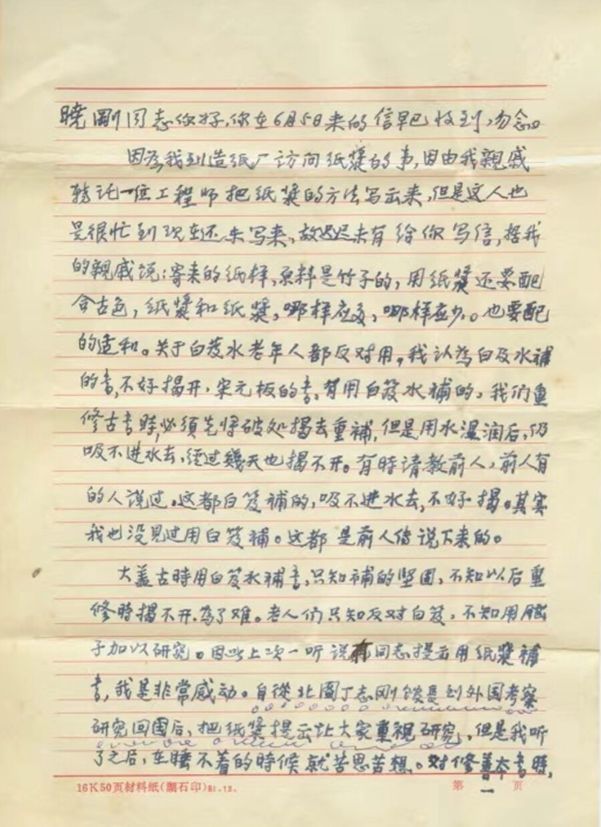 曉剛同志你好,你在6月5日来的信早已收到,勿念。
因为我到造纸厂访问纸漿的事,因由我親戚
轉託一位工程师把纸漿的方法写出来,但是这人也
是很忙到现在还未写来,故迟迟未有给你写信,据我
的親戚说:寄来的纸样,原料是竹子的,用纸漿还要配
合古色,纸漿和纸漿,哪样应多,哪样应少。也要配
的适和。关于白芨水老年人都反对用,我认为白及水補
的书,不好揭开,宋元板的书,有用白芨水補的,我们重
修古書時,必須先将破处揭去重補,但是用水温润后,仍
吸不进水去,經过幾天也揭不开。有時请教前人,前人有
的人说过,这都白芨補的,吸不进水去,不好揭。其实
我也没見过用白芨補。这都是前人传说下来的。
大盖古時用白芨水補書,只知補的坚固,不知以后重
修時揭不开,為了难。老人们只知反对白芨,不知用腦
子加以研究。因此上次一听说 同志提出用纸漿補
書,我是非常感动。自從北圖丁志刚館長到外国考察
研究回國后,把纸漿提出让大家重視研究,但是我听
了之后,在睡不着的時候就苦思苦想。对修善本書時,
16K50页材料纸(翻石印)81.12. 第一页